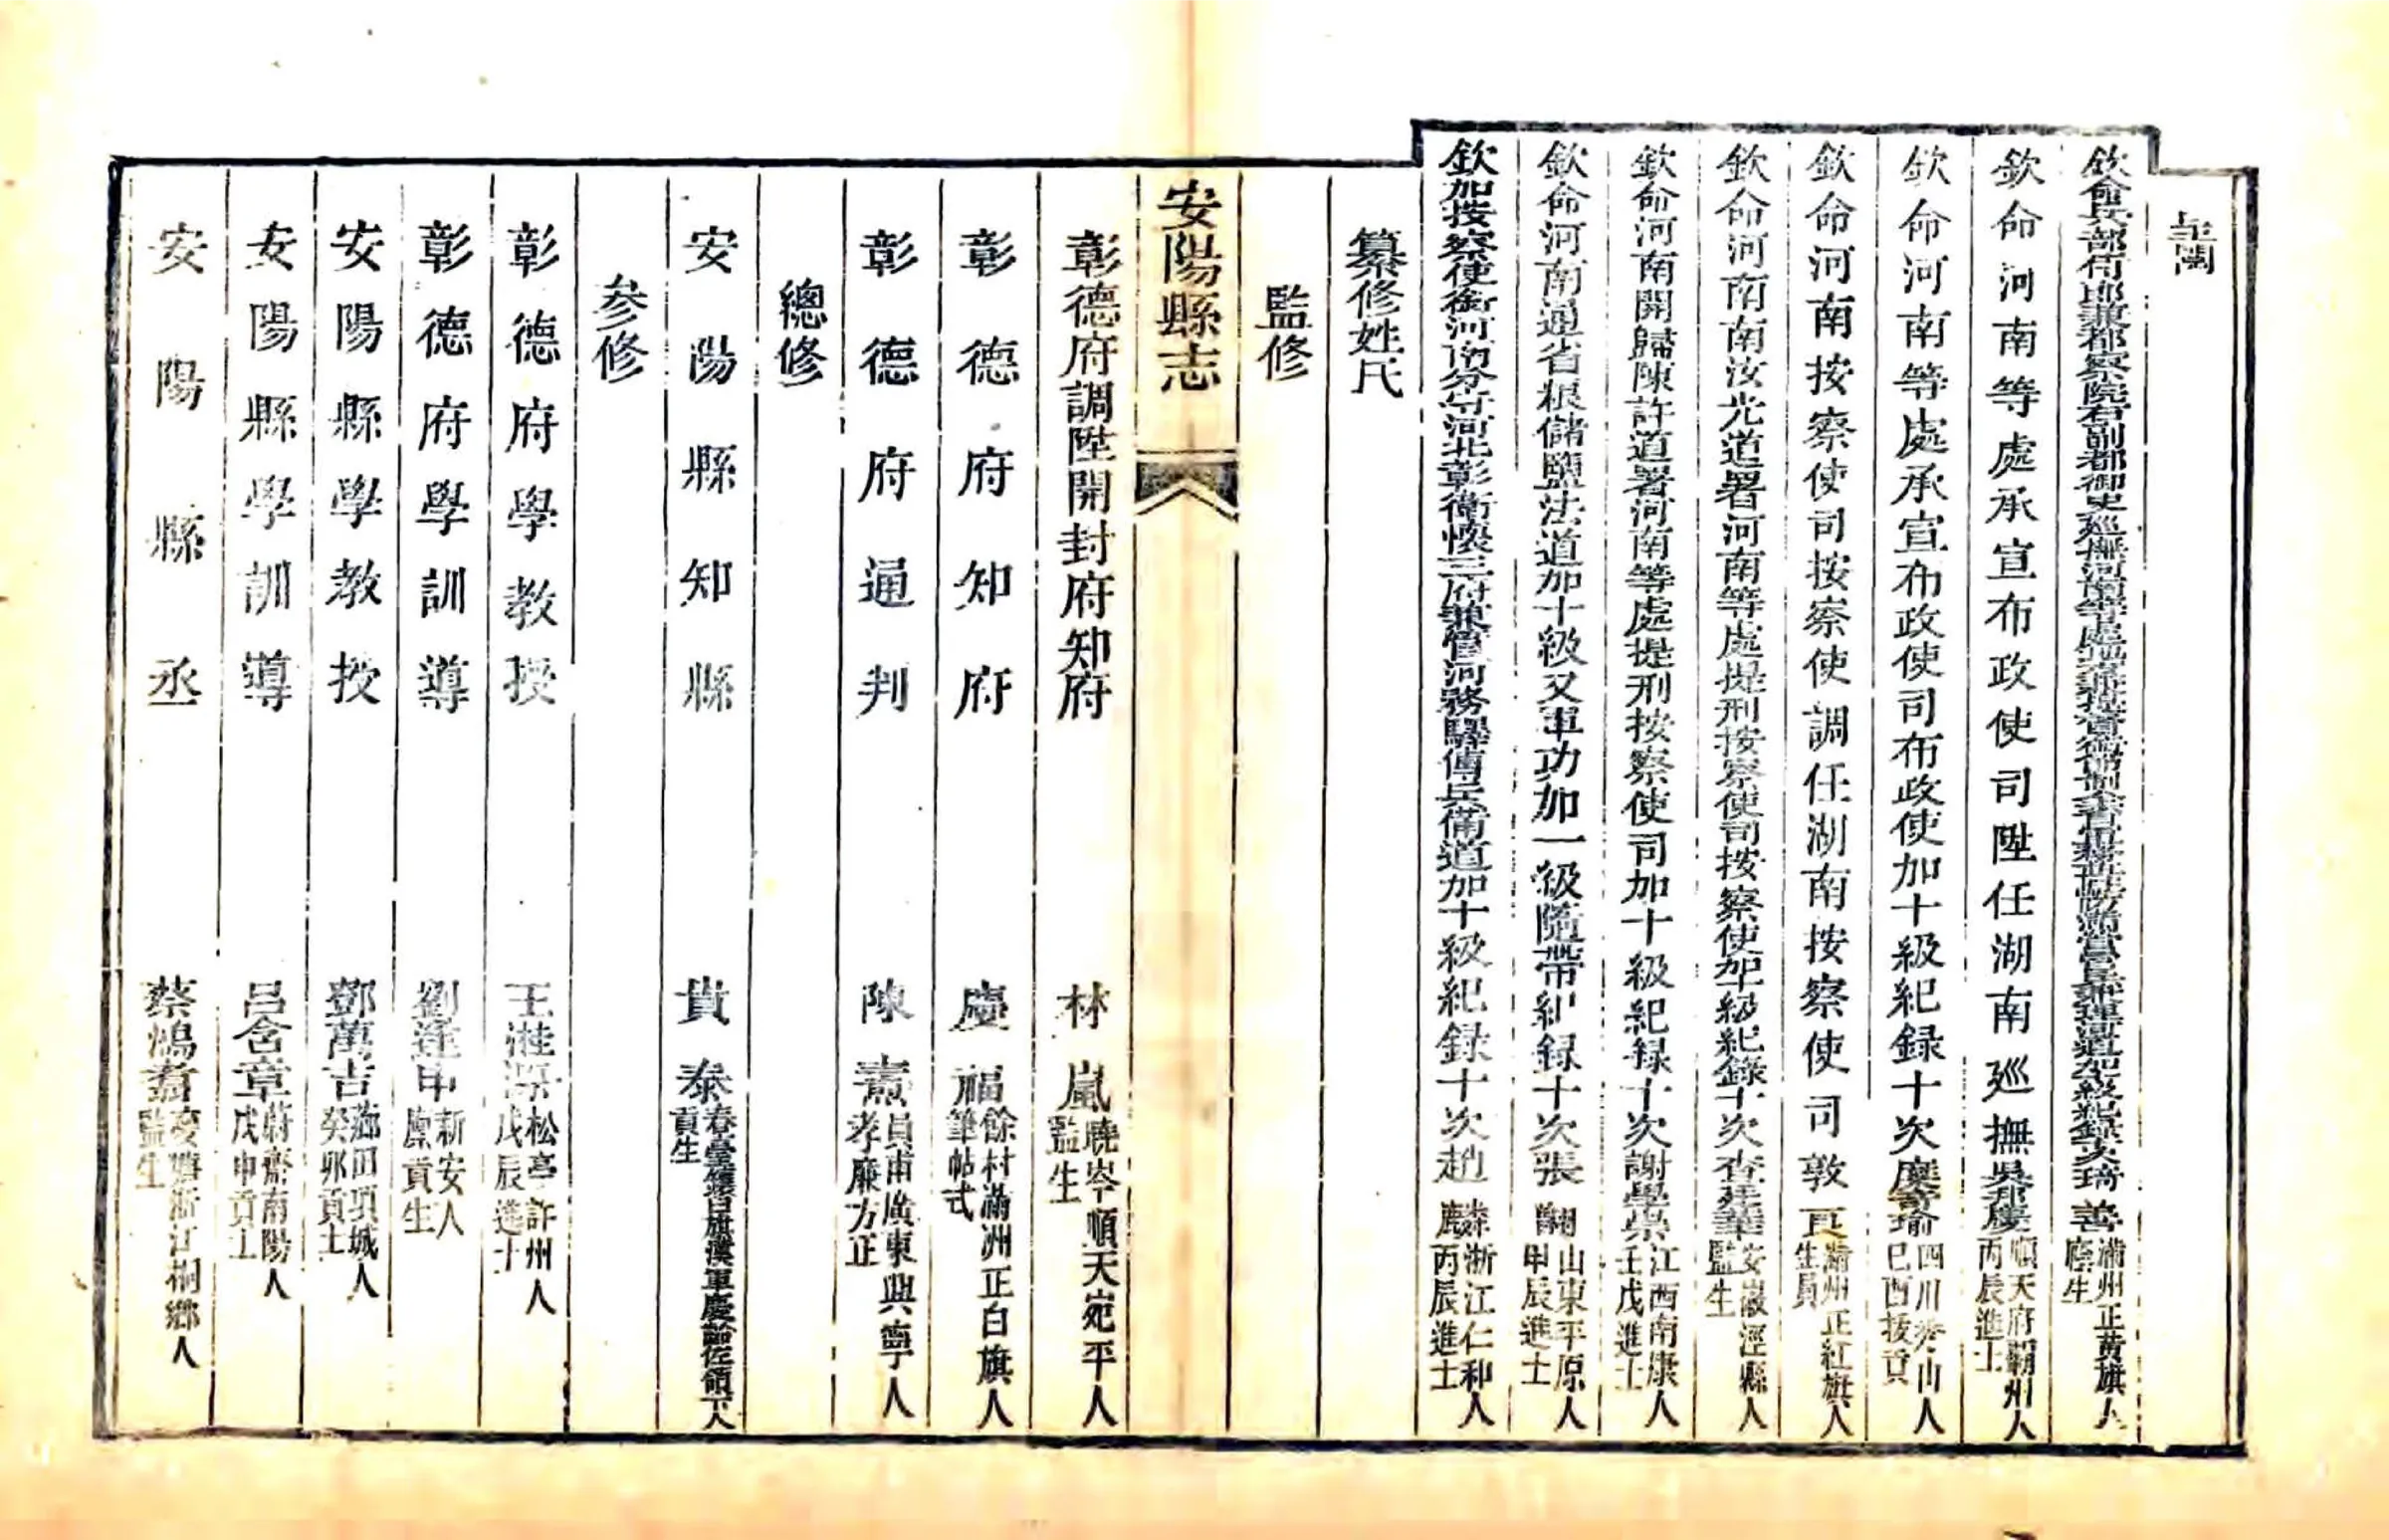 鑒閱
欽命兵部侍郎兼都察院右副都御史廵撫河南等處地方兼提督銜加級紀錄文琦 善滿州正黃旗人廕生
欽命河南等處承宣布政使司陞任湖南廵撫吳邦慶順天府霸州人丙辰進士
欽命河南等處承宣布政使司布政使加十級紀録十次糜奇瑜四川秀山人巳酉拔貢
欽命河南按察使司按察使調任湖南按察使司敦良滿州正紅旗人生員
欽命河南南汝光道署河南等處提刑按察使司按察使加十級紀錄十次查廷華安徽涇縣人監生
欽命河南開歸陳許道署河南等處提刑按察使司加十級紀録十次謝學崇江西南康人壬戌進士
欽命河南通省粮儲鹽法道加十級又軍功加一級隨帶紀録十次張 山東平原人甲辰進士
欽加按察使銜河南分守河北彰衛懷三府兼管河務驛傳兵備道加十級紀録十次趙 浙江仁和人丙辰進士
纂修姓氏
監修
安陽縣志
彰德府調陞開封府知府 林嵐曉岑順天宛平人監生
彰德府知府 慶福餘村滿洲正白旗人筆帖式
彰德府通判 陳 員甫廣東興寧人孝廉方正
總修
安陽縣知縣 貴泰春臺鑲白旗漢軍慶齡佐領下人貢生
參修
彰德府學教授 王 松亭許州人戊辰進士
彰德府學訓導 劉逢申新安人廩貢生
安陽縣學教授 鄧萬吉薌田項城人癸卯貢士
安陽縣學訓導 呂含章蔚齋南陽人戊申貢士
安陽縣丞 蔡鴻翥 浙江桐鄉人監生